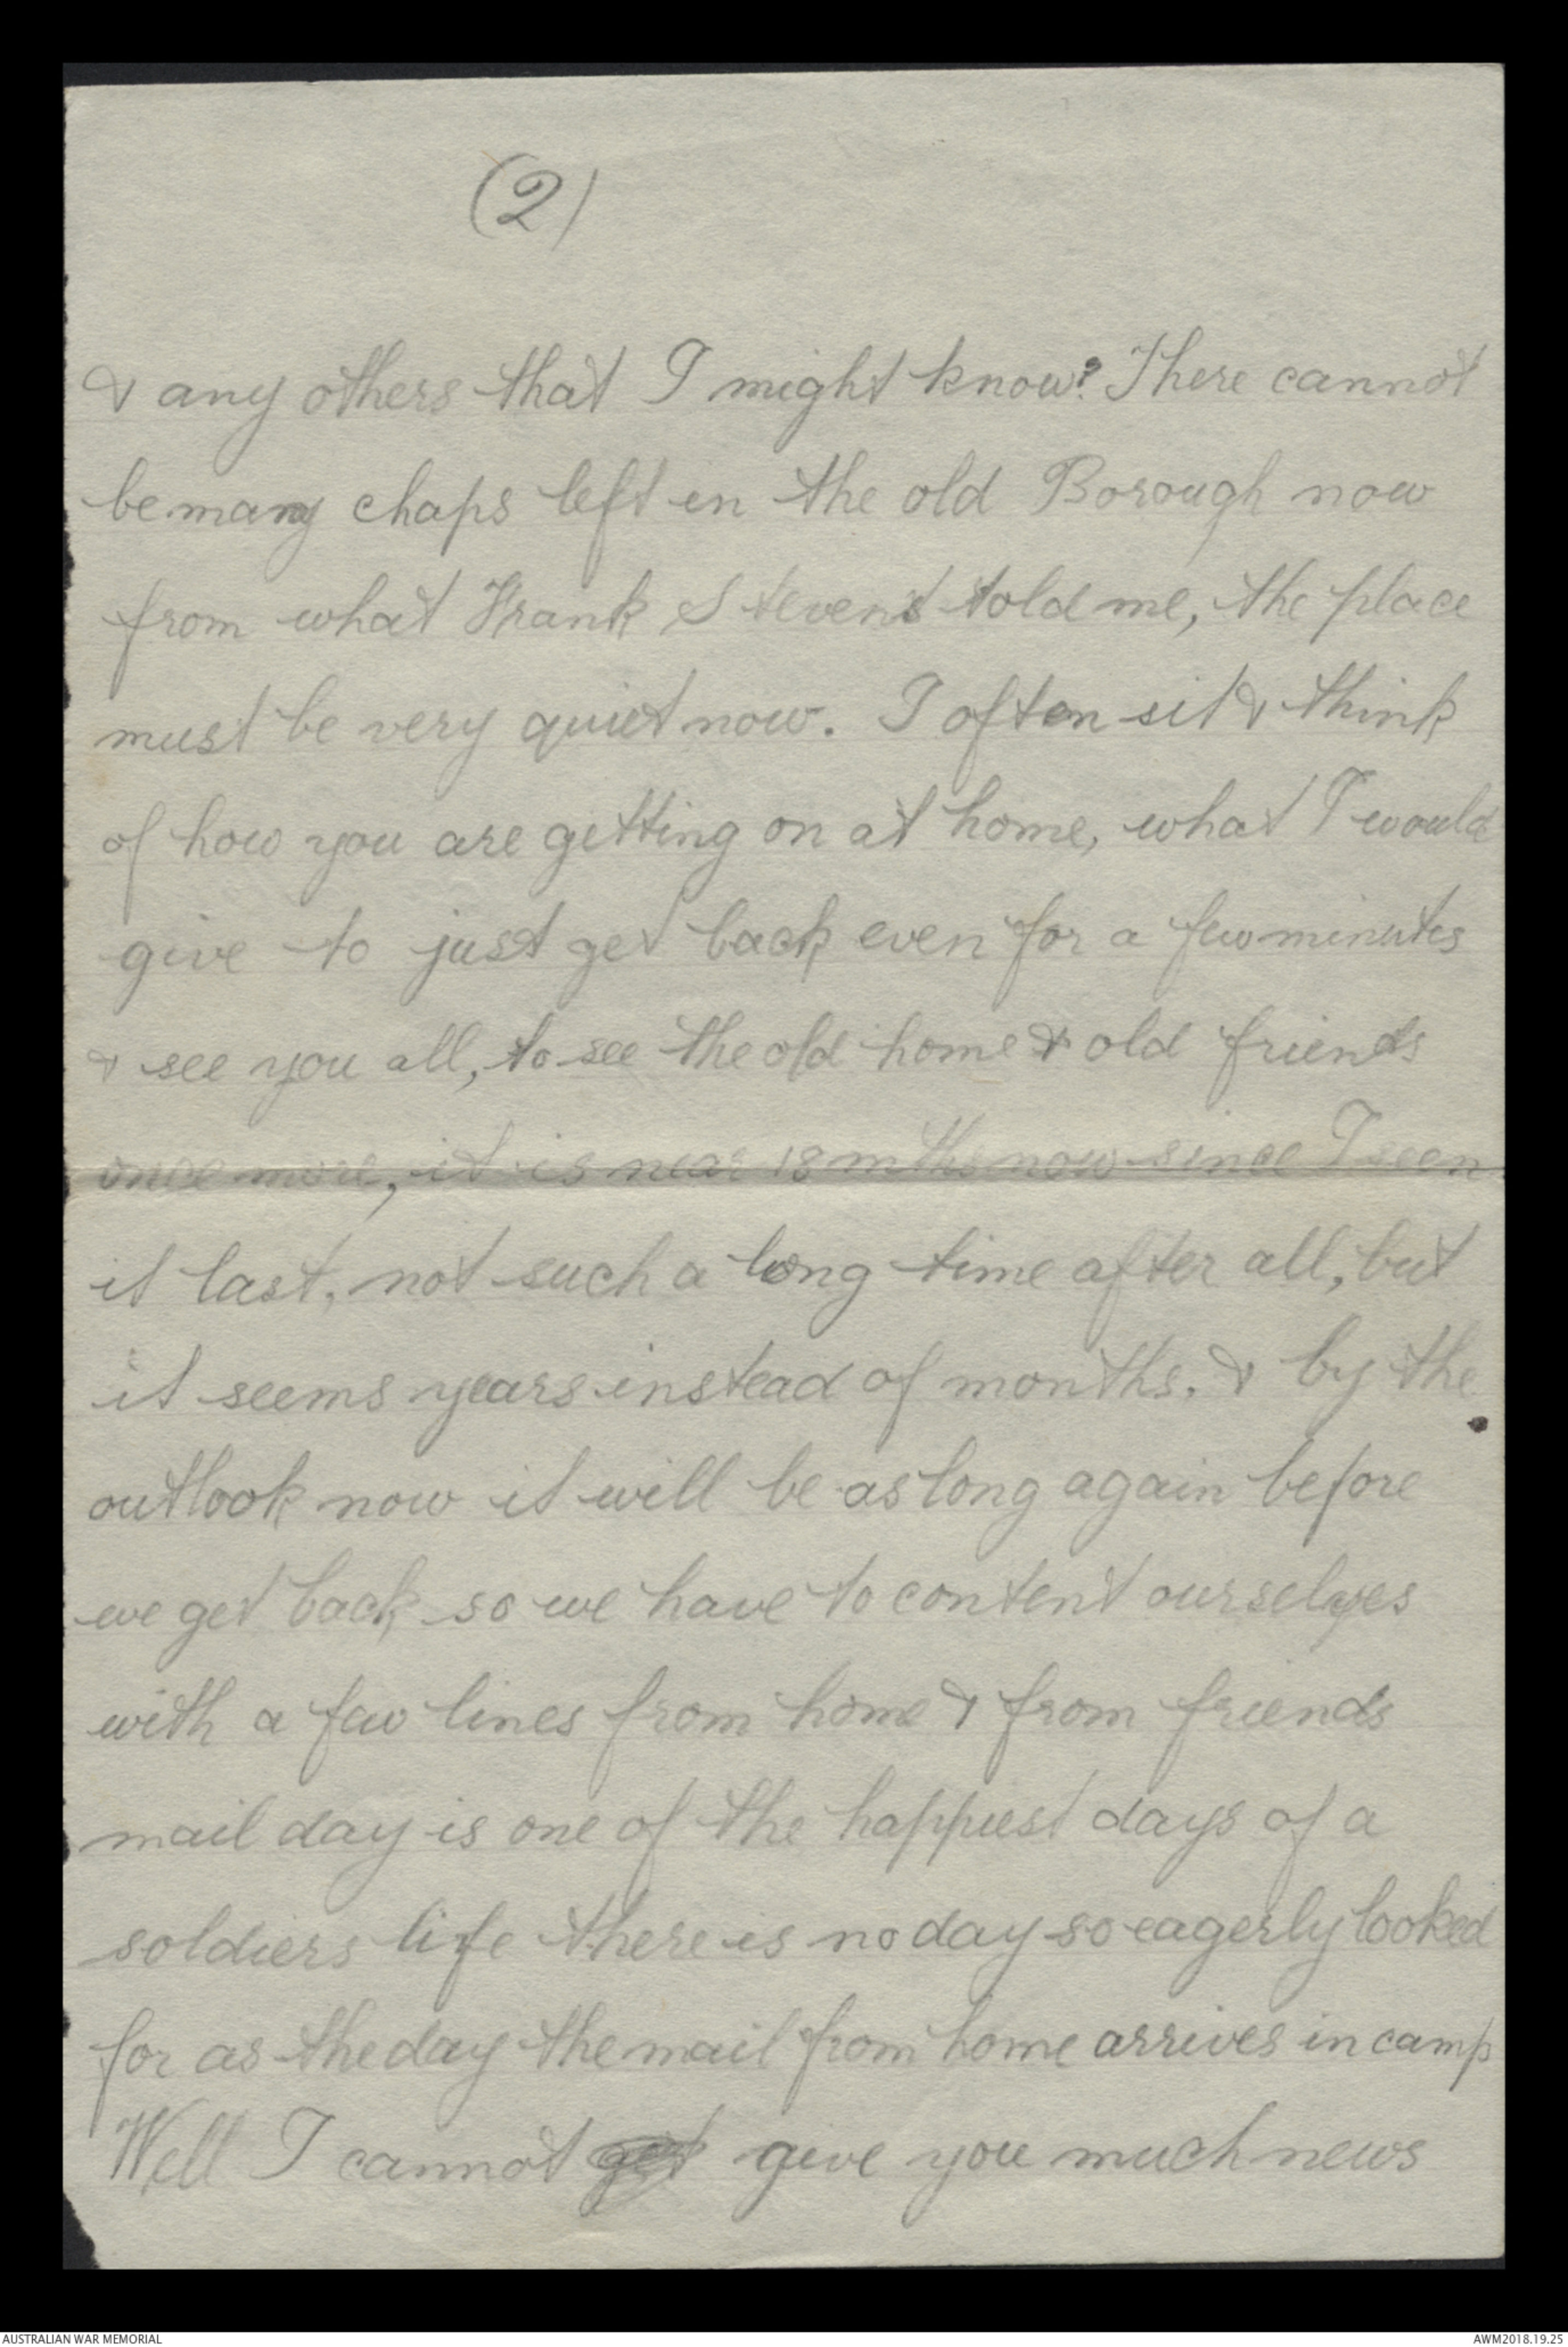 (2)
& any others that I might know? There cannot
be many chaps left in the old Borough now
from what Frank Stevens told me, the place
must be very quiet now. I often sit & think
of how you are getting on at home, what I would
give to just get back even for a few minutes
& see you all, to see the old home & old friends
once more, it is near 18 mths now since I seen
it last, not such a long time after all, but
it seems years instead of months. & by the
outlook now it will be as long again before
we get back so we have to content ourselves
with a few lines from home & from friends
mail day is one of the happiest days of a
soldiers life there is no day so eagerly looked
for as the day the mail from home arrives in camp
Well I cannot get give you much news
AUSTRALIAN WAR MEMORIAL
AWM2018.19.25